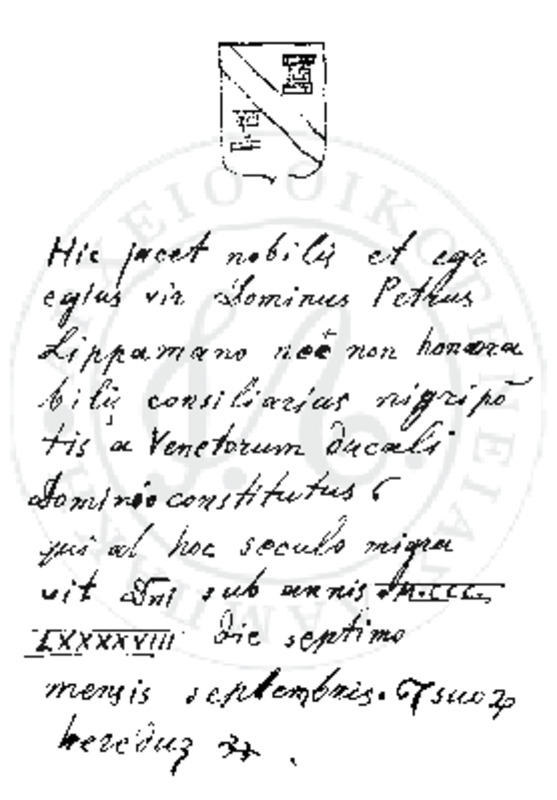 Hic jacet nobilis et egr
egius vir Dominus Petrus
Lippamano nec non honora
bilis consiliarius nigripō
tis a Venetorum ducali
Dominio constitutus
qui ab hoc seculo migra
vit Dni sub annis M.CCC.
LXXXXVIII die septimo
mensis septembris. suoꝝ
hereduꝫ
ΑΡΧΕΙΟ ΟΙΚΟΓΕΝΕΙΑΣ